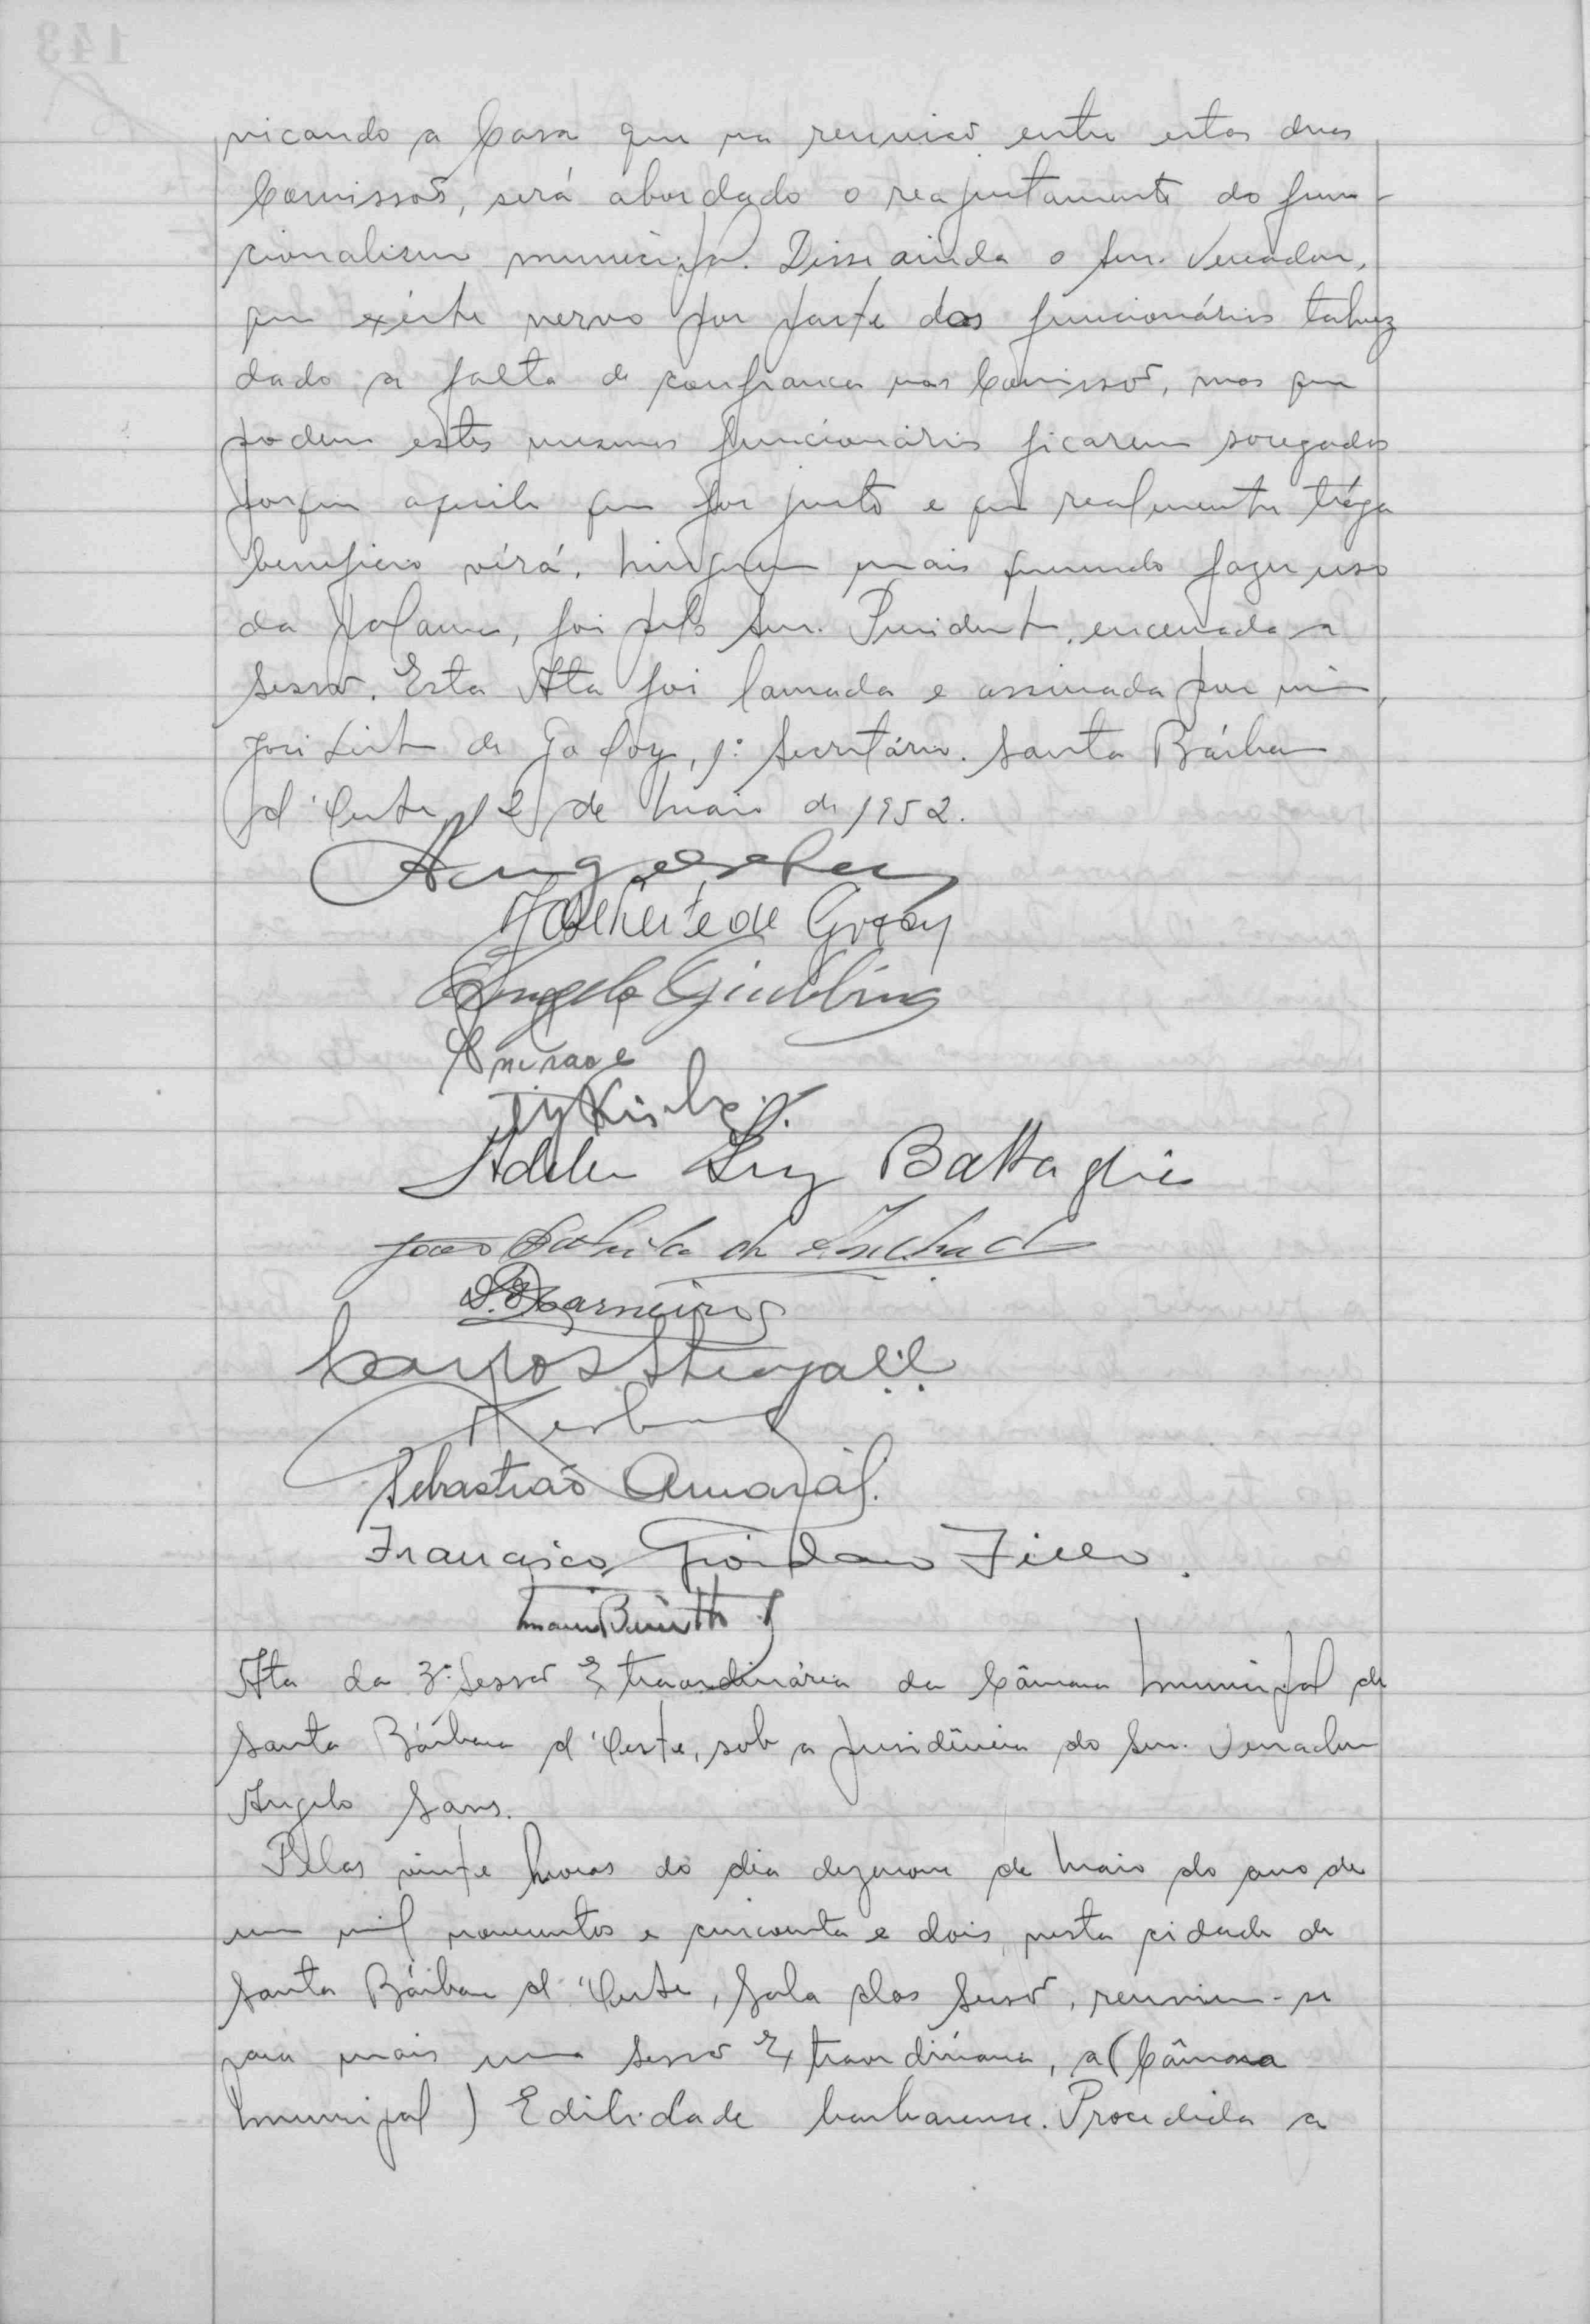 nicando a Casa que na reunião entre estas duas
Comissões, será abordado o reajustamento do fun-
cionalismo municipal. Disse ainda o snr. Vereador,
que existe nervo por parte dos funcionários talvez
dado a falta de confiança nas Comissões, mas que
podem estes mesmos funcionários ficarem socegados
porque aquilo que for justo e que realmente tróga
beneficio virá. Ninguem mais querendo fazer uso
da palavra, foi pelo Snr. Presidente, encerrada a
Sessão. Esta Ata foi lavrada e assinada por mim,
José Leite de Godoy, 1º Secretário. Santa Bárbara
d'Oeste, 12 de Maio de 1952.
José Leite de Godoy
Angelo Giubbina
Adelino Luiz Battaglia
João Batista de Andrade
Carneiro
Carlos Steagall
Sebastião Amaral.
Francisco Giordano Filho.
Ata da 3ª Sessão Extraordinária da Câmara Municipal de
Santa Bárbara d'Oeste, sob a presidência do Snr. Vereador
Angelo Sans.
Pelas vinte horas do dia dezenove de Maio do ano de
um mil novecentos e cincoenta e dois, nesta cidade de
Santa Bárbara d'Oeste, Sala das Sessões, reuniu-se
para mais uma sessão Extraordinária, a (Câmara
Municipal) Edilidade barbarense. Procedida a